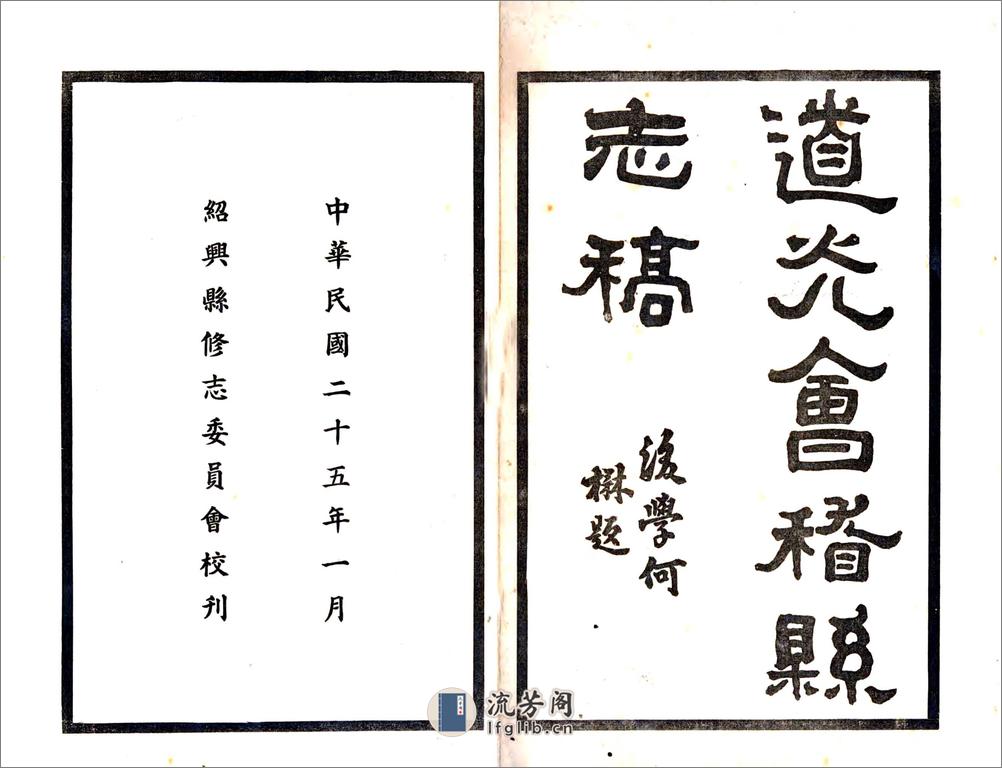 道光會稽縣
志稿
後學何
楙題
中華民國二十五年一月
紹興縣修志委員會校刊
流芳阁
lfglib.cn